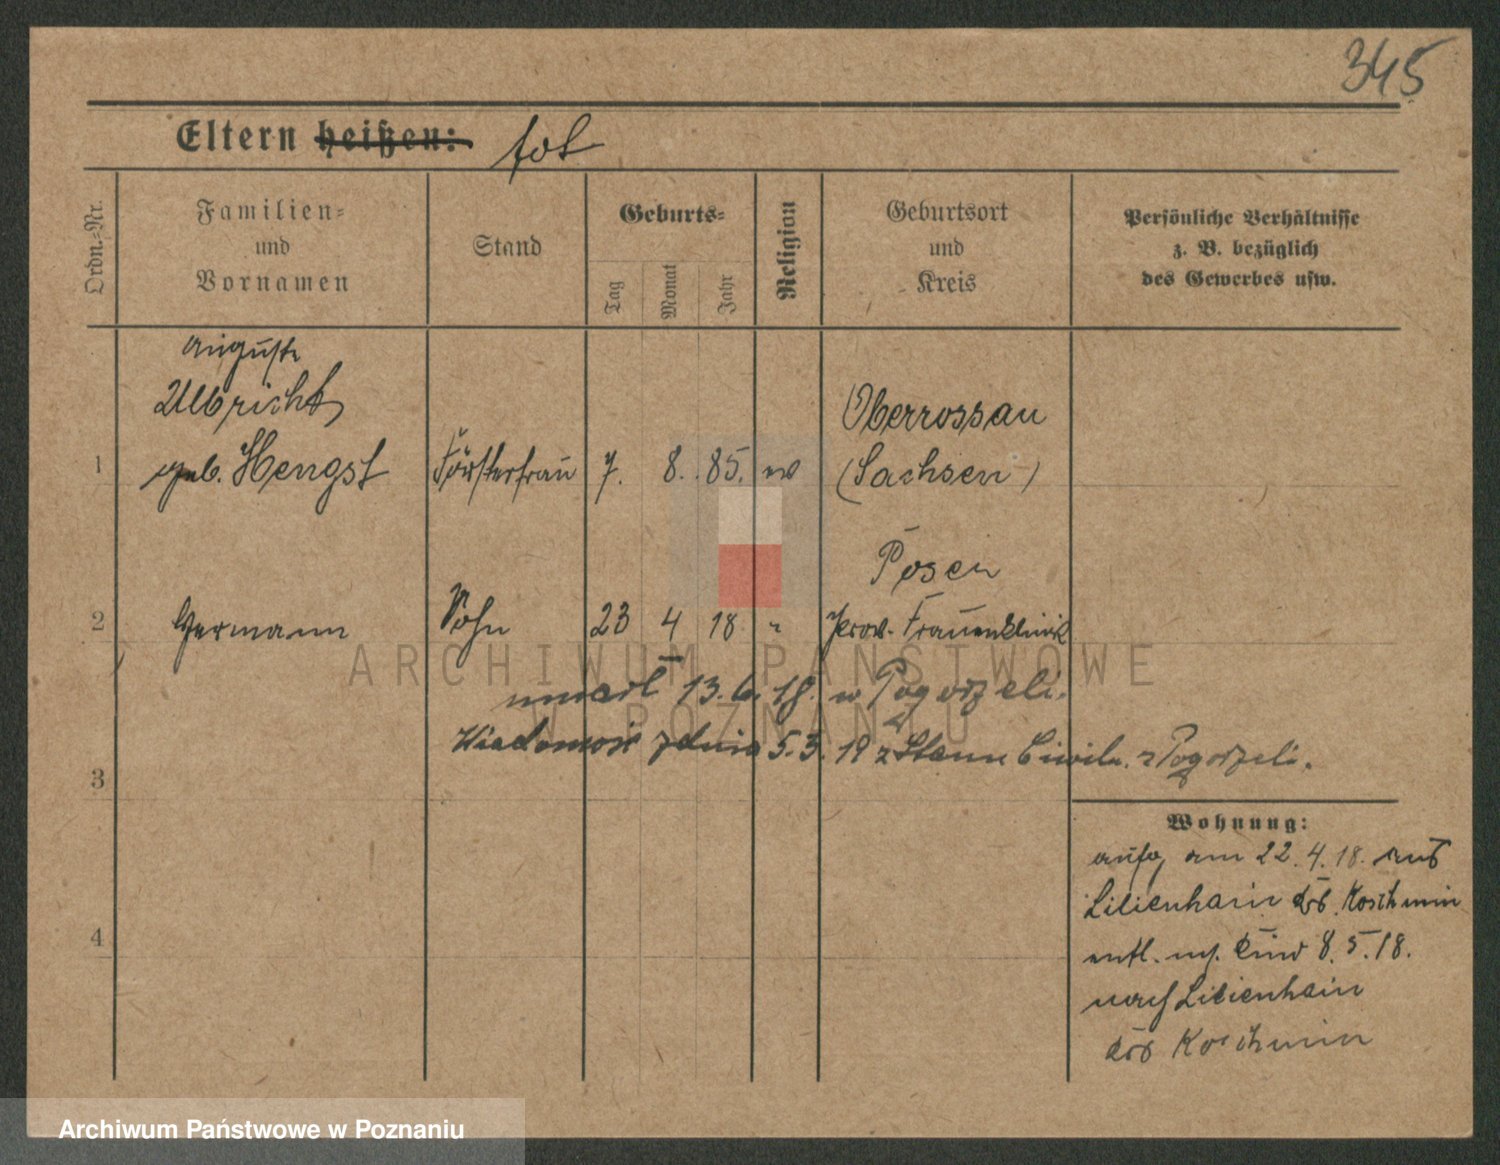 345
Eltern heißen: tot
Ordn.-Nr.
Familien-
und
Vornamen
Stand
Geburts-
Tag
Monat
Jahr
Religion
Geburtsort
und
Kreis
Persönliche Verhältnisse
z. B. bezüglich
des Gewerbes usw.
1
Auguste
Ulbricht
geb. Hengst
Försterfrau
7.
8.
85.
ev
Oberrossau
(Sachsen)
2
Hermann
Sohn
23
4
18
"
Posen
Prov. Frauenklinik
umarł 13. 6. 18. w Pogorzeli.
Wiadomość z dnia 5. 3. 19 z Stanu Ciwiln. z Pogorzeli.
3
4
Wohnung:
aufg am 22. 4. 18. aus
Lilienhain Krs. Koschmin
entl. m. Kind 8. 5. 18.
nach Lilienhain
Krs Koschmin
ARCHIWUM PAŃSTWOWE
W POZNANIU
Archiwum Państwowe w Poznaniu